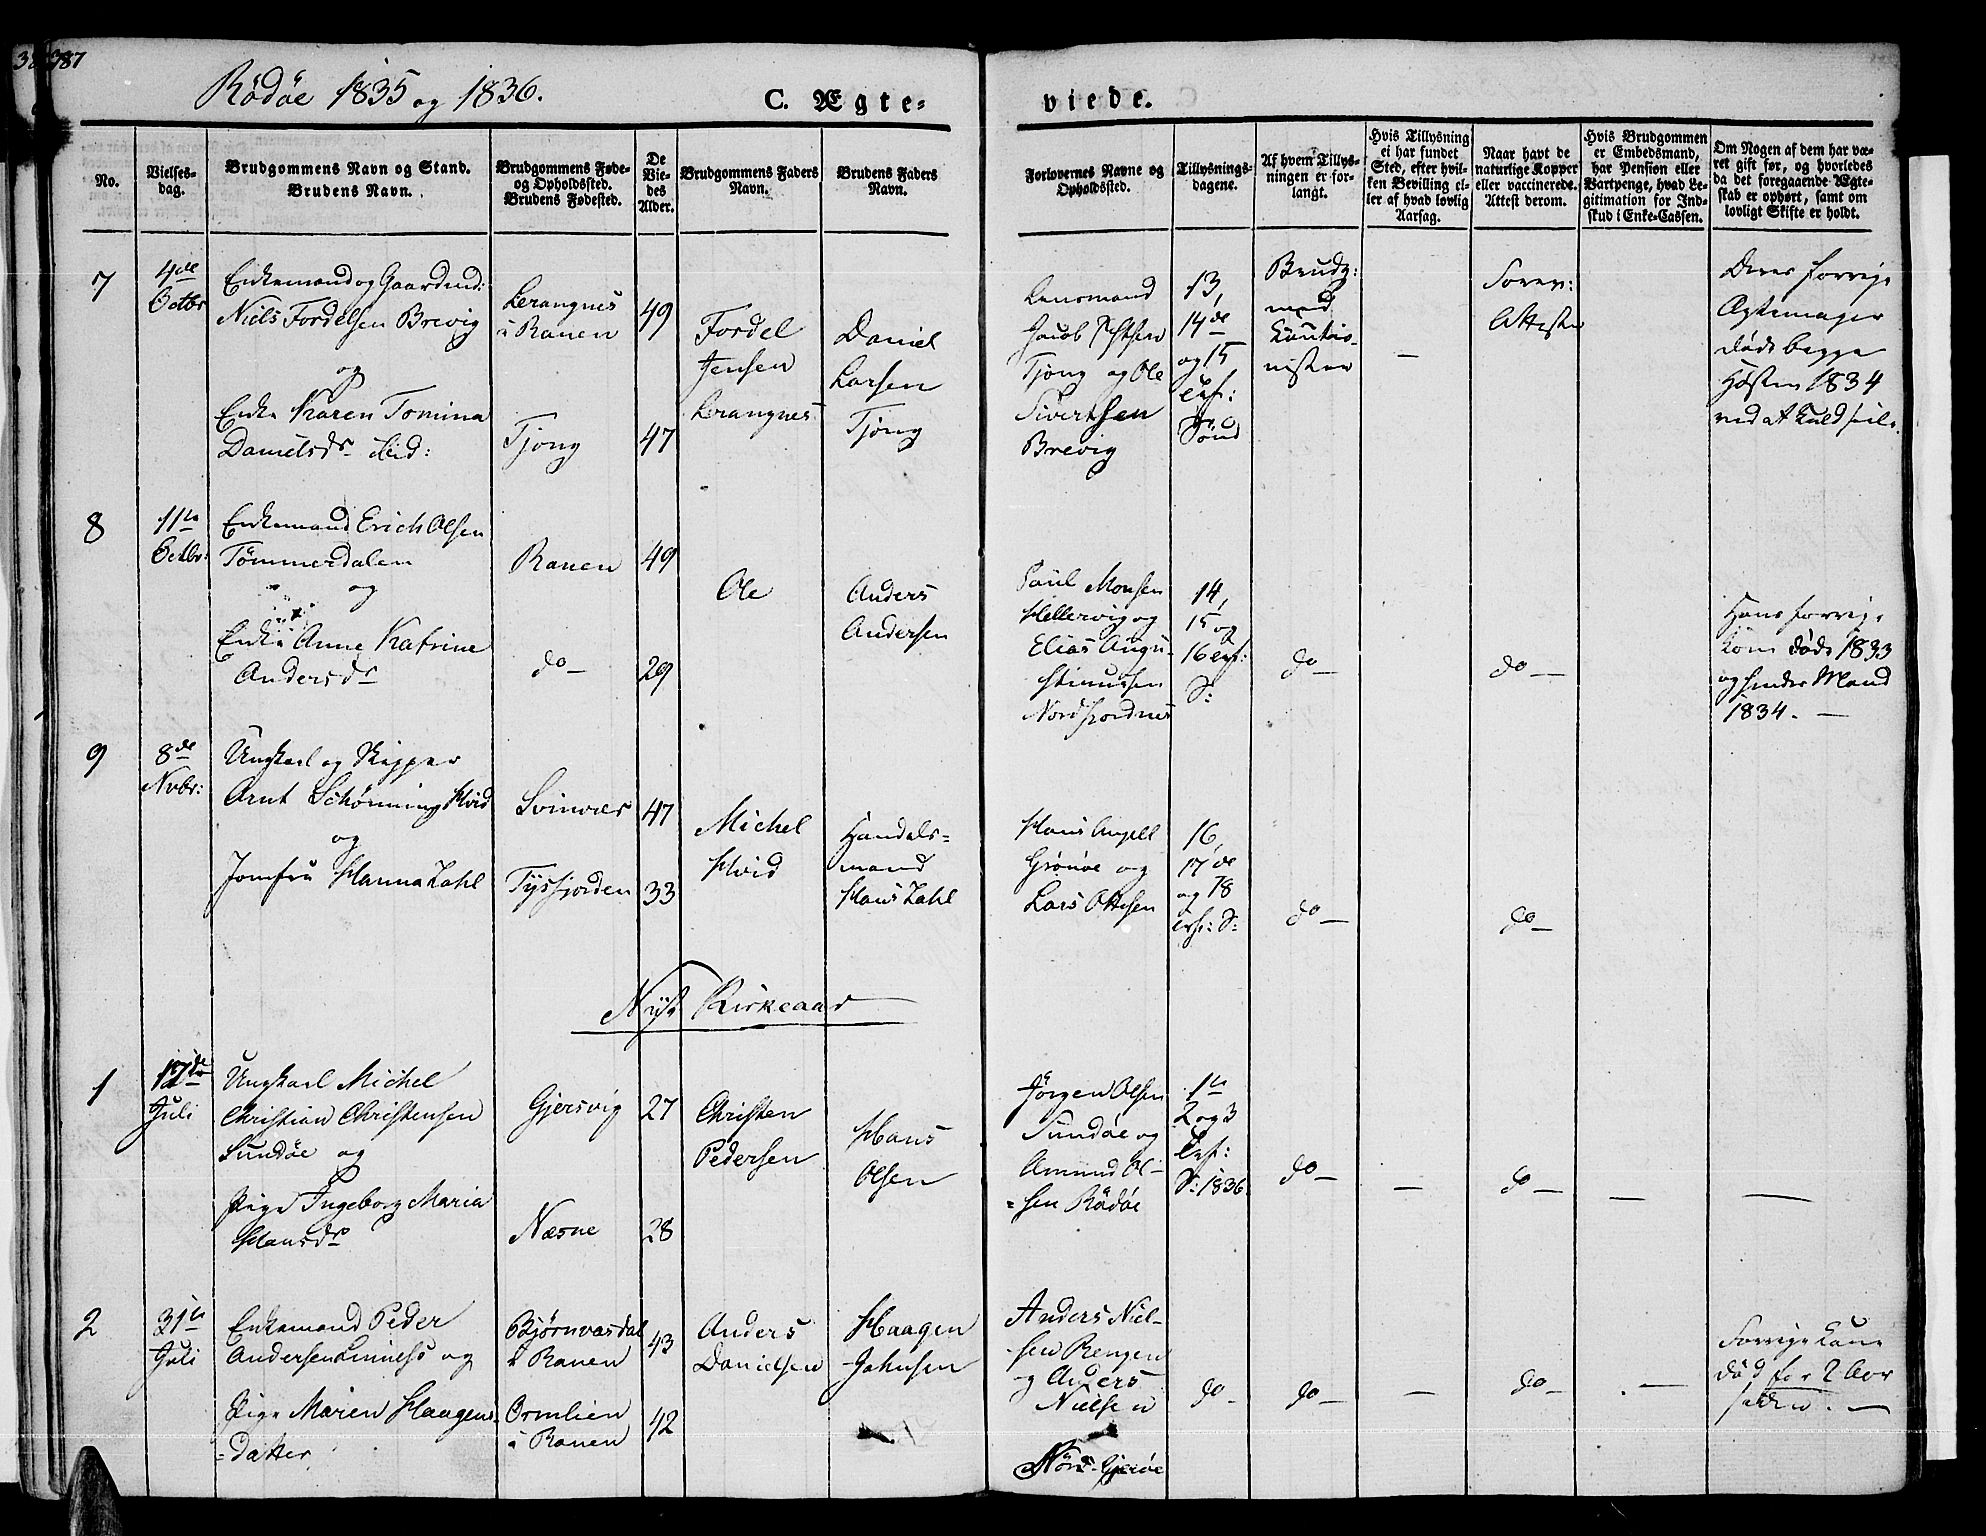 387
Rödöe 1835 og 1836.
C. Ægte-
viede.
No.
Vielses-
dag.
Brudgommens Navn og Stand.
Brudens Navn.
Brudgommens Føde-
og Opholdssted.
Brudens Fødested.
De
Vie-
des
Alder.
Brudgommens Faders
Navn.
Brudens Faders
Navn.
Forlovernes Navne og
Opholdssted.
Tillysnings-
dagene.
Af hvem Tillys-
ningen er for-
langt.
Hvis Tillysning
ei har fundet
Sted, efter hvil-
ken Bevilling el-
ler af hvad lovlig
Aarsag.
Naar havt de
naturlige Kopper
eller vaccinerede.
Attest derom.
Hvis Brudgommen
er Embedsmand,
har Pension eller
Vartpenge, hvad Le-
gitimation for Ind-
skud i Enke-Cassen.
Om Nogen af dem har væ-
ret gift før, og hvorledes
da det foregaaende Ægte-
skab er ophørt, samt om
lovligt Skifte er holdt.
7
4de
Octbr
Enkemand og Gaardmd:
Niels Fordelsen Brevig
og
Enke Karen Tomina
Danielsdr ibid:
Lerangnes
i Ranen
Tjong
49
47
Fordel
Jensen
Lerangnes
Daniel
Larsen
Tjong
Lensmand
Jacob
Tjong og Ole
Sivertsen
Brevig
13,
14de
og 15
Sönd
Brudg:
med
Attester
Deres forrige
Ægtemager
døde begge
Høsten 1834
ved at
8
11te
Octbr:
Enkemand Erich Olsen
Tömmerdalen
og
Enke Anne Katrine
Andersdr
Ranen
do —
49
29
Ole
Anders
Andersen
Paul Monsen
Hellervig og
Elias Augu-
stinussen
Nordfjordnes
14,
15 og
16
S:
do —
do —
Hans forrige
Kone døde 1833
og hendes Mand
1834. —
9
8de
Nvbr:
Ungkarl og Skipper
Arnt Schönning Hvid
og
Jomfru Hanna Zahl
Svinvær
Tysfjorden
47
33
Michel
Hvid
Handels-
mand
Hans Zahl
Hans Angell
Grönöe og
Lars Ottesen
16,
17de
og 18
do —
do —
Nyt Kirkeaar
1
17de
Juli
Ungkarl Michel
Christian Christensen
Sundöe og
Pige Ingeborg Maria
Hansdr
Gjersvig
Næsne
27
28
Christen
Pedersen
Hans
Olsen
Jörgen Olsen
Sundöe og
Amund Ol-
-sen Rödöe
1te
2 og 3
S: 1836
do —
—
do —
—
—
2
31te
Juli
Enkemand Peder
Andersen og
Pige Maren Haagens-
-datter
Bjørnvasdal
i Ranen
Ormlien
i Ranen
43
42
Anders
Danielsen
Haagen
Johnsen
Anders Niel-
-sen Rengen
og Anders
Nielsen
do —
do —
—
do —
—
Forrige Kone
død for 2 Aar
siden. —